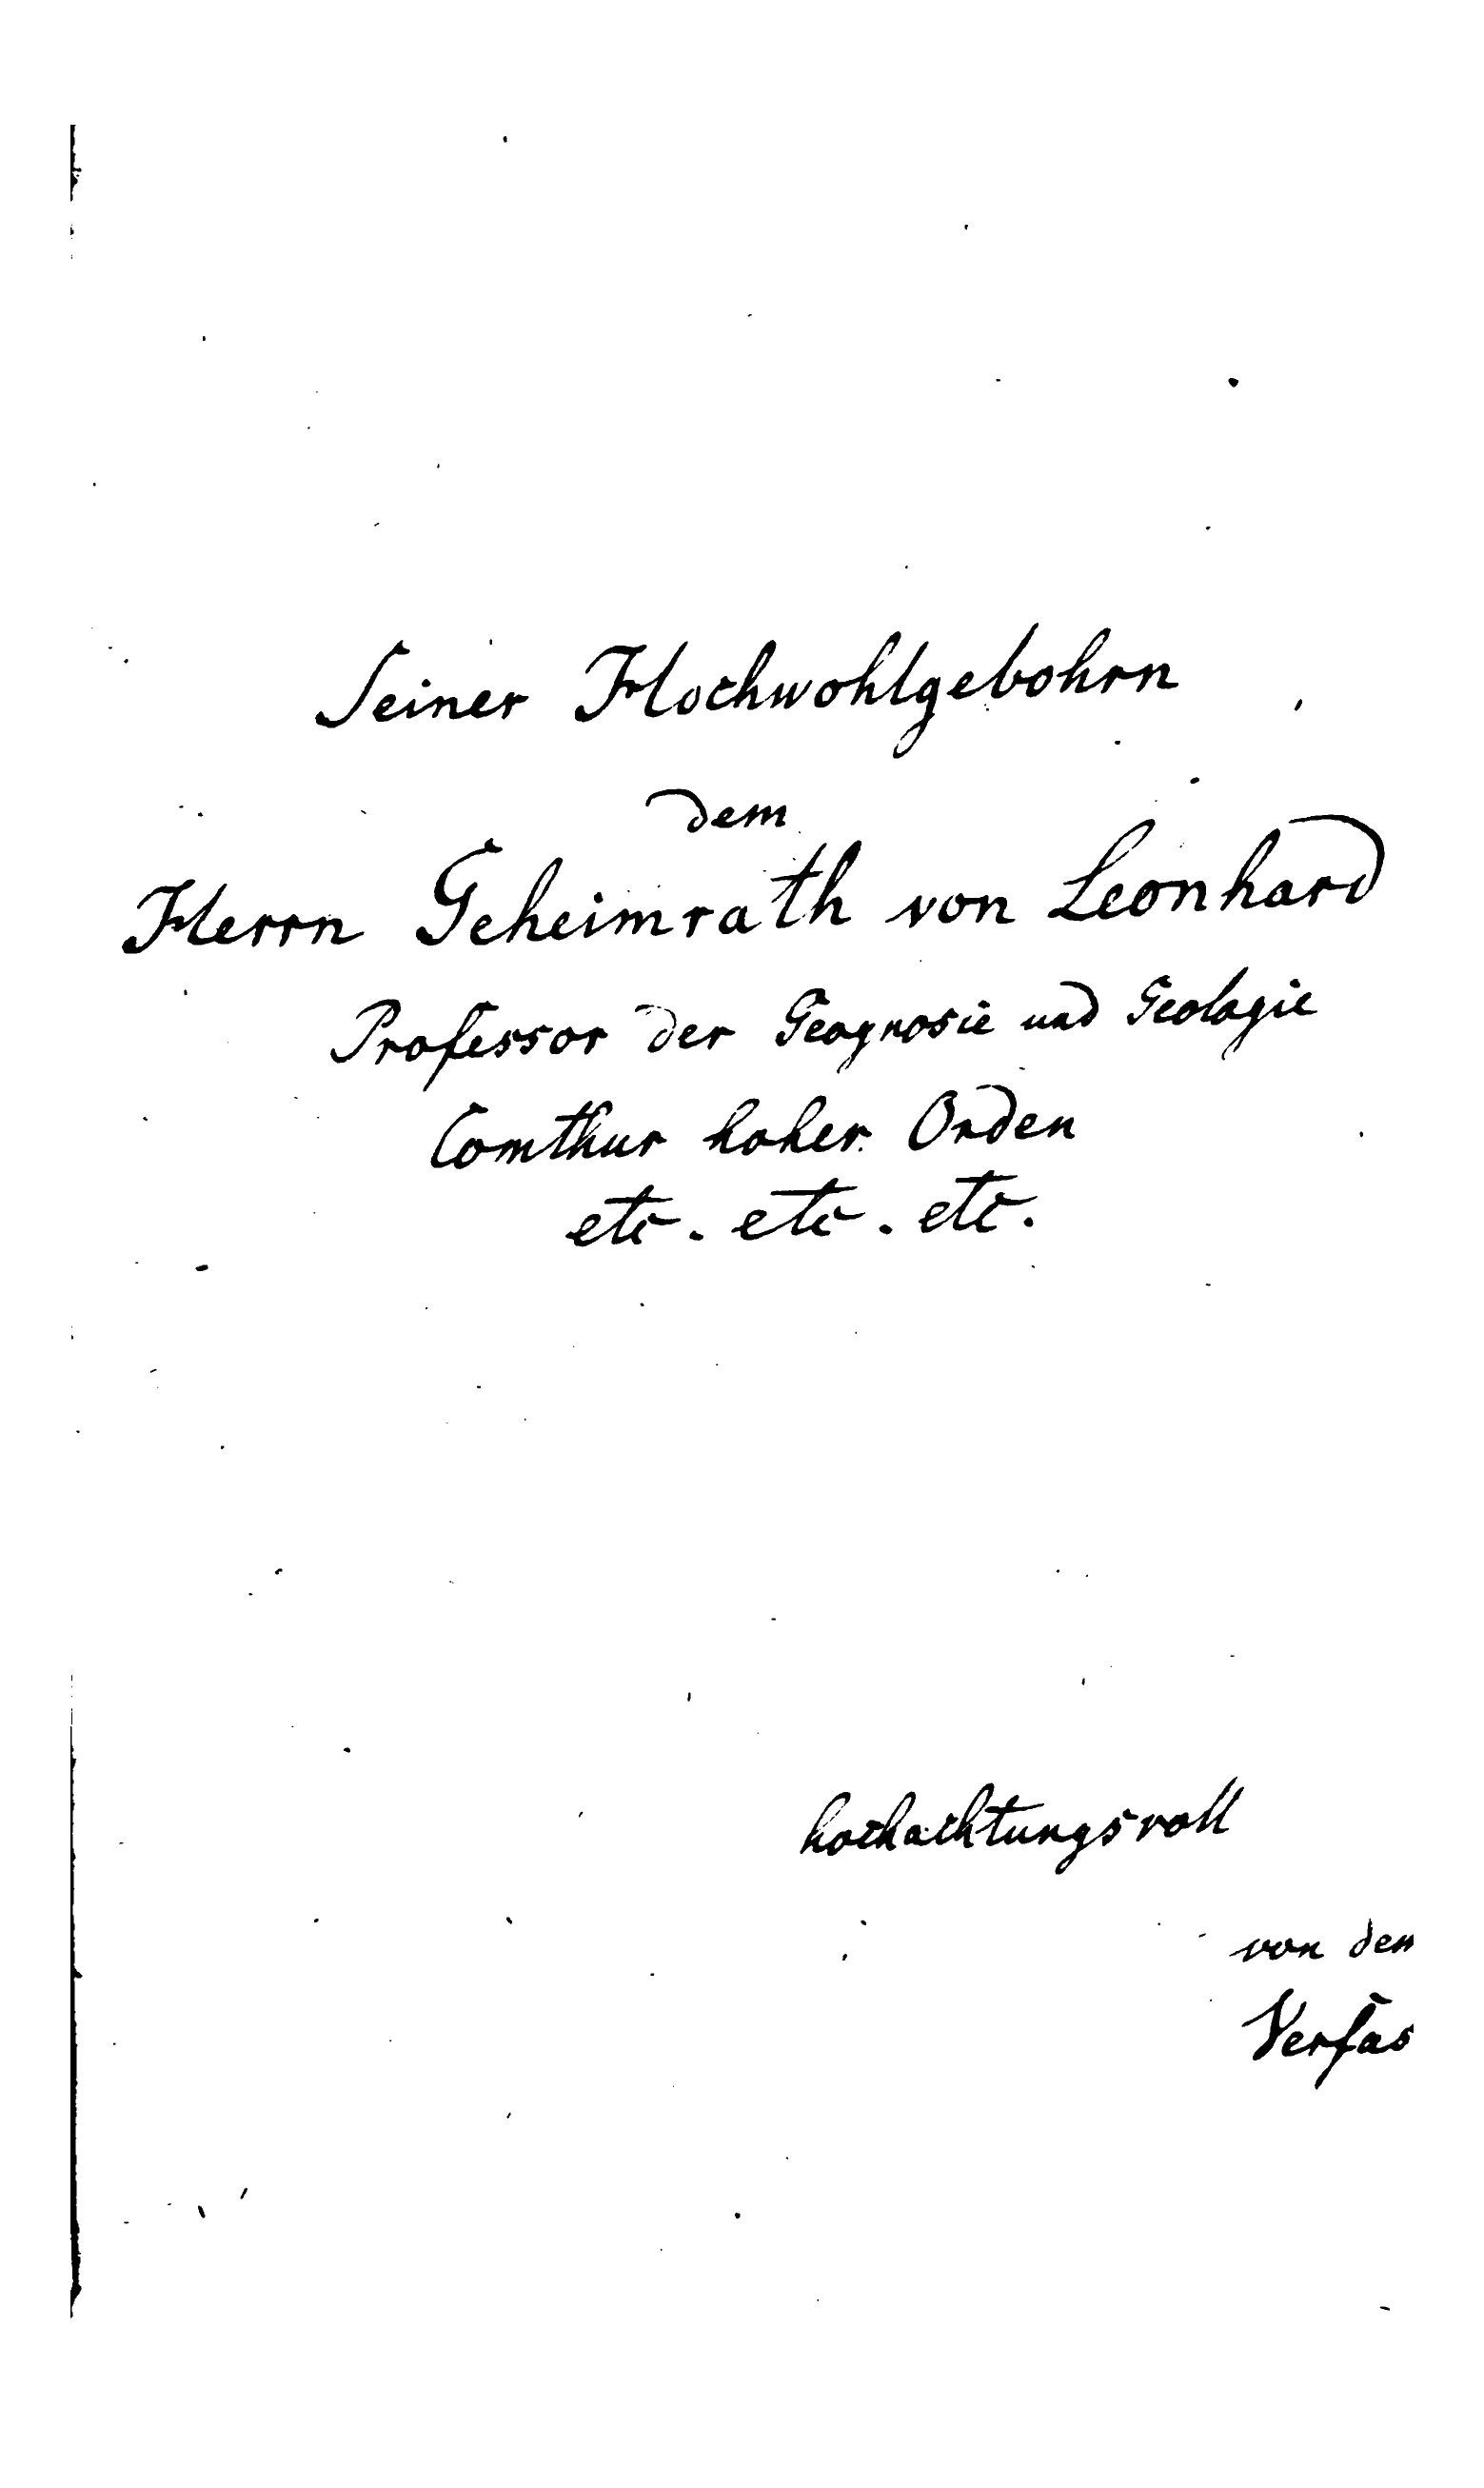 Seiner Hochwohlgebohrn
dem
Herrn Geheimrath von Leonhard
Professor der Geognosie und Geologie
Comthur hoher Orden
etc. etc. etc.
hochachtungsvoll
von dem
Verfas